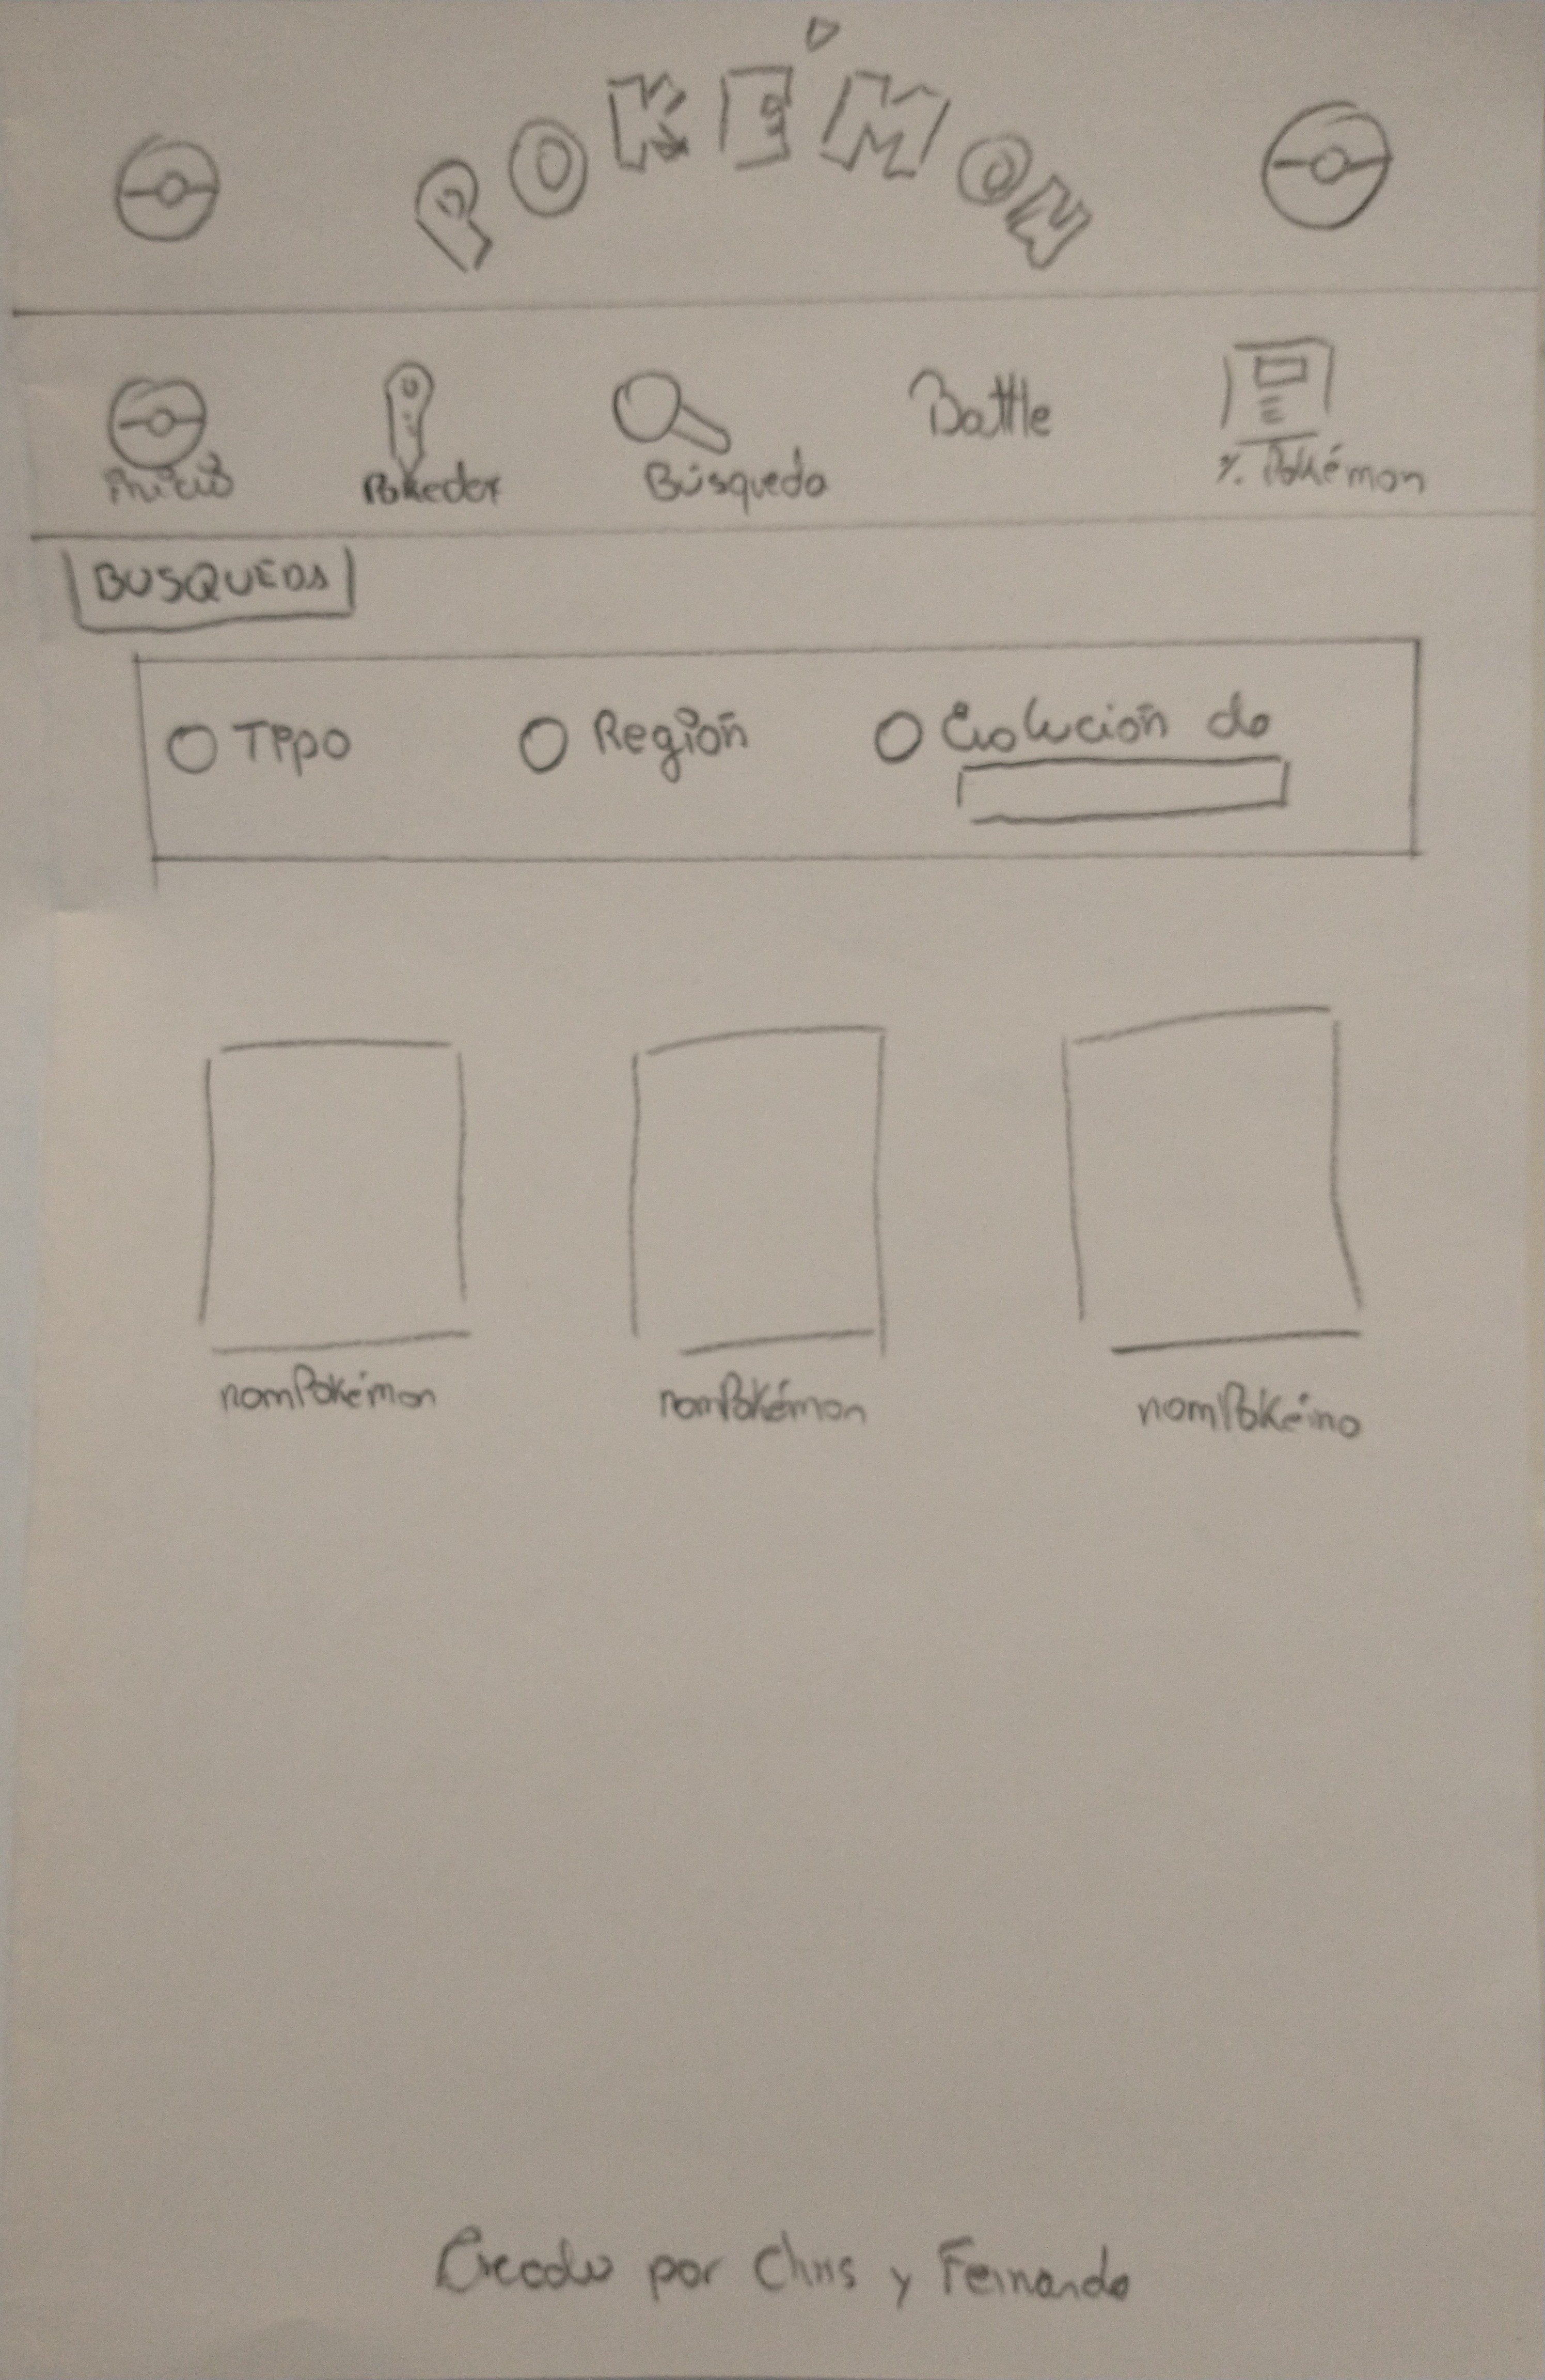 POKÉMON
Inicio Pokedex Búsqueda Battle %. Pokémon
BUSQUEDA
Tipo Región Evolución de
nomPokémon nomPokémon nomPokémo
Creado por Chris y Fernando